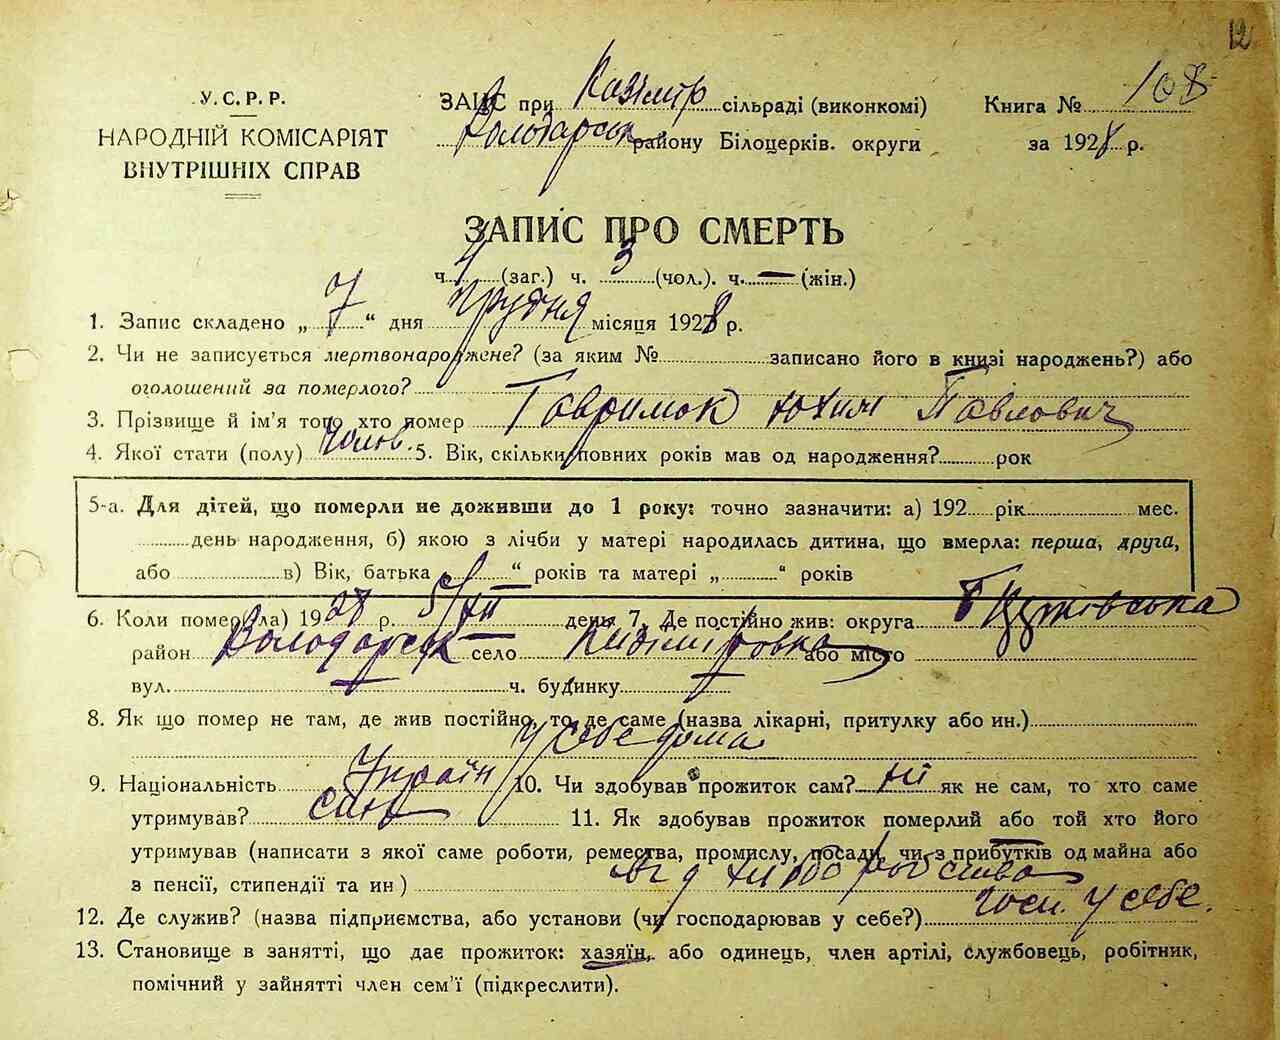 12
У.С.Р.Р.
НАРОДНІЙ КОМІСАРІЯТ
ВНУТРІШНІХ СПРАВ
ЗАПИС при Казімір сільраді (виконкомі)
Володарськ району Білоцерків. округи
Книга № 108
за 1928 р.
ЗАПИС ПРО СМЕРТЬ
ч. 4 (заг.) ч. 3 (чол.). ч. — (жін.)
1. Запис складено „ 7 “ дня Грудня місяця 1928 р.
2. Чи не записується мертвонароджене? (за яким № записано його в книзі народжень?) або
оголошений за померлого?
3. Прізвище й ім'я того хто помер Гавримок Юхим Павлович
4. Якої стати (полу) Чолов. 5. Вік, скільки повних років мав од народження? рок
5-а. Для дітей, що померли не доживши до 1 року: точно зазначити: а) 192 рік мес.
день народження, б) якою з лічби у матері народилась дитина, що вмерла: перша, друга,
або в) Вік, батька „ “ років та матері „ “ років
6. Коли помер(ла) 1928 р. 5/XII день 7. Де постійно жив: округа Б Церковська
район Володарськ село Казімірівка або місто
вул. — ч. будинку —
8. Як що помер не там, де жив постійно, то де саме (назва лікарні, притулку або ин.)
у себе дома
9. Національність Україн 10. Чи здобував прожиток сам? ні як не сам, то хто саме
утримував? син 11. Як здобував прожиток померлий або той хто його
утримував (написати з якої саме роботи, ремества, промислу, посади, чи з прибутків од майна або
з пенсії, стипендії та ин) від хліборобства
12. Де служив? (назва підприємства, або установи (чи господарював у себе?) госп. у себе.
13. Становище в занятті, що дає прожиток: хазяїн, або одинець, член артілі, службовець, робітник,
помічний у зайнятті член сем'ї (підкреслити).